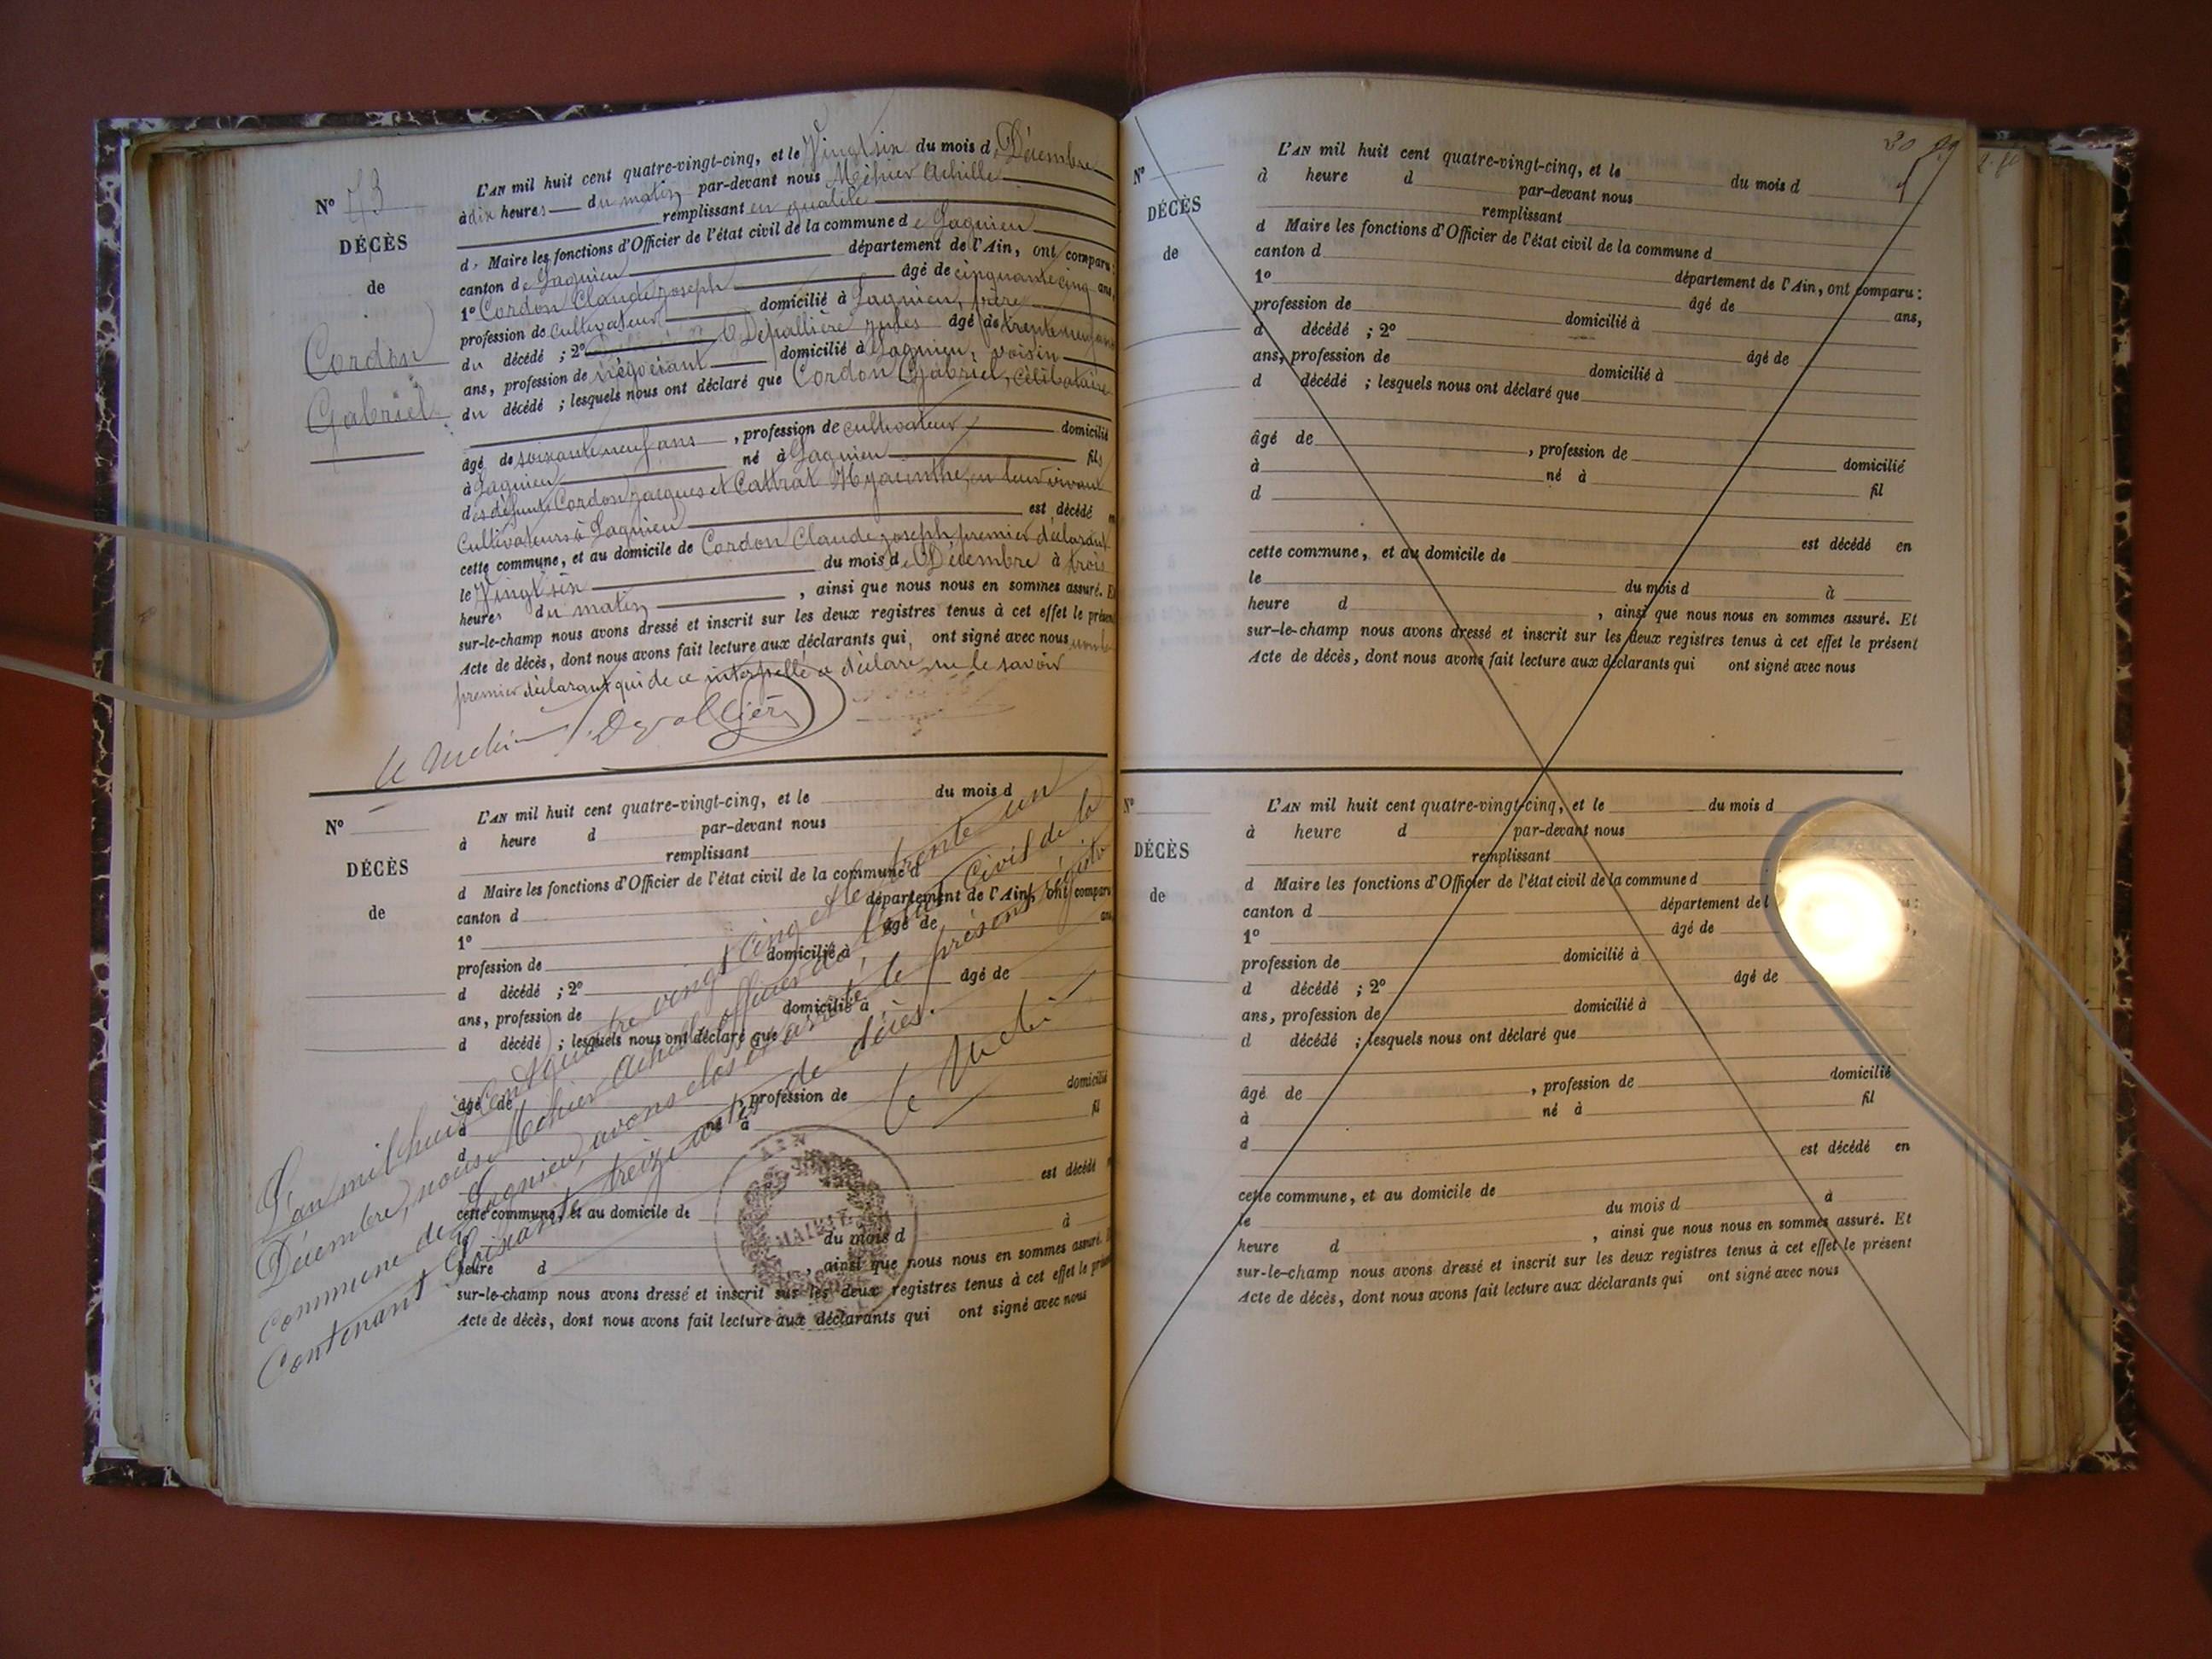 N° 73
DÉCÈS
de
Cordon
Gabriel
L'AN mil huit cent quatre-vingt-cinq, et le Vingt six du mois de Décembre
à dix heures du matin par-devant nous Méhier Achille
remplissant en qualité
de Maire les fonctions d'Officier de l'état civil de la commune de Lagnieu
canton de Lagnieu département de l'Ain, ont comparu :
1° Cordon Claude Joseph âgé de cinquante cinq ans,
profession de cultivateur domicilié à Lagnieu, frère
du décédé ; 2° Depallière Jules âgé de trente neuf ans
ans, profession de négociant domicilié à Lagnieu, voisin
du décédé ; lesquels nous ont déclaré que Cordon Gabriel, célibataire
âgé de soixante neuf ans , profession de cultivateur domicilié
à Lagnieu né à Lagnieu fils
des défunts Cordon Jacques et Cattrat Hyacinthe, en leur vivant
cultivateurs à Lagnieu est décédé en
cette commune, et au domicile de Cordon Claude Joseph premier déclarant
le Vingt six du mois de Décembre à trois
heures du matin , ainsi que nous nous en sommes assuré. Et
sur-le-champ nous avons dressé et inscrit sur les deux registres tenus à cet effet le présent
Acte de décès, dont nous avons fait lecture aux déclarants qui ont signé avec nous non le
premier déclarant qui de ce interpellé a déclaré ne le savoir
N°
DÉCÈS
de
L'AN mil huit cent quatre-vingt-cinq, et le du mois d
à heure d par-devant nous
remplissant
d Maire les fonctions d'Officier de l'état civil de la commune d
canton d département de l'Ain, ont comparu
1° âgé de ans
profession de domicilié à
d décédé ; 2° âgé de
ans, profession de domicilié à
d décédé ; lesquels nous ont déclaré que
âgé de , profession de domicilié
à né à fil
d
est décédé
cette commune, et au domicile de
le du mois d à
heure d , ainsi que nous nous en sommes assuré.
sur-le-champ nous avons dressé et inscrit sur les deux registres tenus à cet effet le présent
Acte de décès, dont nous avons fait lecture aux déclarants qui ont signé avec nous
L'an mil huit cent quatre vingt cinq et le trente un
Décembre, nous Méhier Achille officier de l'état Civil de la
Commune de Lagnieu, avons clos et arrêté le présent régistre
Contenant Soixante treize actes de décès.
AIN
MAIRIE
30
N°
DÉCÈS
de
L'AN mil huit cent quatre-vingt-cinq, et le du mois d
à heure d par-devant nous
remplissant
d Maire les fonctions d'Officier de l'état civil de la commune d
canton d département de l'Ain, ont comparu :
1° âgé de ans,
profession de domicilié à
d décédé ; 2° âgé de
ans, profession de domicilié à
d décédé ; lesquels nous ont déclaré que
âgé de , profession de domicilié
à né à fil
d
est décédé en
cette commune, et au domicile de
le du mois d à
heure d , ainsi que nous nous en sommes assuré. Et
sur-le-champ nous avons dressé et inscrit sur les deux registres tenus à cet effet le présent
Acte de décès, dont nous avons fait lecture aux déclarants qui ont signé avec nous
N°
DÉCÈS
de
L'AN mil huit cent quatre-vingt-cinq, et le du mois d
à heure d par-devant nous
remplissant
d Maire les fonctions d'Officier de l'état civil de la commune d
canton d département de l
1° âgé de
profession de domicilié à
d décédé ; 2° âgé de
ans, profession de domicilié à
d décédé ; lesquels nous ont déclaré que
âgé de , profession de domicilié
à né à fil
d
est décédé en
cette commune, et au domicile de
le du mois d à
heure d , ainsi que nous nous en sommes assuré. Et
sur-le-champ nous avons dressé et inscrit sur les deux registres tenus à cet effet le présent
Acte de décès, dont nous avons fait lecture aux déclarants qui ont signé avec nous